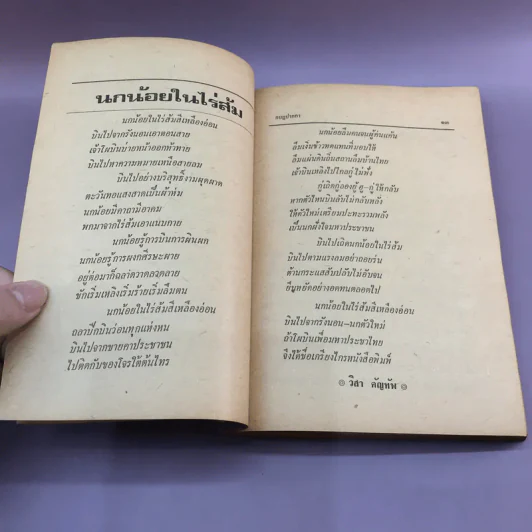 นกน้อยในไร่ส้ม
นกน้อยในไร่ส้มสีเหลืองอ่อน
บินไปจากรังนอนเอาตอนสาย
เจ้าโผบินบ่ายหน้าออกท้าทาย
บินไปหาความหมายเหนือสายลม
บินไปอย่างบริสุทธิ์งามผุดผาด
ตะวันทอแสงสาดเป็นผ้าห่ม
นกน้อยมีคาถามีอาคม
พกมาจากไร่ส้มเอาแนบกาย
นกน้อยรู้การบินการผินผก
นกน้อยรู้การผงกศีรษะผาย
อยู่ต่อมาก็ฉลาดลวดลาย
ชักเริ่มเหลิงเริ่มร้ายเริ่มลืมตน
นกน้อยในไร่ส้มสีเหลืองอ่อน
ถลาปีกบินร่อนทุกแห่งหน
บินไปจากชายคาประชาชน
ไปติดกับของโจรใต้ต้นไทร
กบฏปากกา
นกน้อยลืมตนจนผู้อื่นแค้น
ลืมเงินข้าวทดแทนที่มอบให้
ลืมแผ่นดินถิ่นสถานลืมบ้านไทย
เจ้าบินเหลิงไปไกลกู่ไม่ฟัง
กู่เถิดกู่ลองกู่ กู่-กู่ ให้กลับ
หากตัวไหนบินลับไม่กลับหลัง
ให้ตัวใหม่เตรียมปะทะรวมพลัง
เป็นนกฝั่งใจมหาประชา
บินไปเถิดนกน้อยในไร่ส้ม
บินไปตามแรงลมอย่าถอยร่น
ต้านกระแสสับปลับไม่อับจน
ยืนหยัดอย่างอดทนตลอดไป
นกน้อยในไร่ส้มสีเหลืองอ่อน
บินไปจากรังนอน-นกตัวใหม่
ถ้าโผบินเพื่อมหาประชาไทย
จึงได้ชื่อเกรียงไกรหนังสือพิมพ์
๏ วิสา คัญทัพ ๏